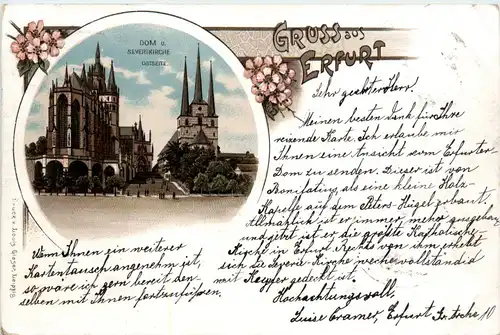 DOM u.
SEVERIKIRCHE
OSTSEITE
GRUSS aus
ERFURT
Sehr geehrter Herr!
Meinen besten Dank für Ihre
reizende Karte. Ich erlaube mir
Ihnen eine Ansicht vom Erfurter
Dom zu senden. Dieser ist von
Bonifatius, als eine kleine Holz-
Kapelle auf dem Peters-Hügel erbaut.
Allmählich ist er immer mehr ausgebaut
und jetzt ist er die größte Katholische
Kirche in Erfurt. Rechts von ihm erhebt
sich die Severie-Kirche welche vollständig
mit Kupfer gedeckt ist.
Hochachtungsvoll,
Luise Cramer, Erfurt 10
Wenn Ihnen ein weiterer
Kartentausch angenehm ist,
so wäre ich gern bereit den
selben mit Ihnen fortzuführen.